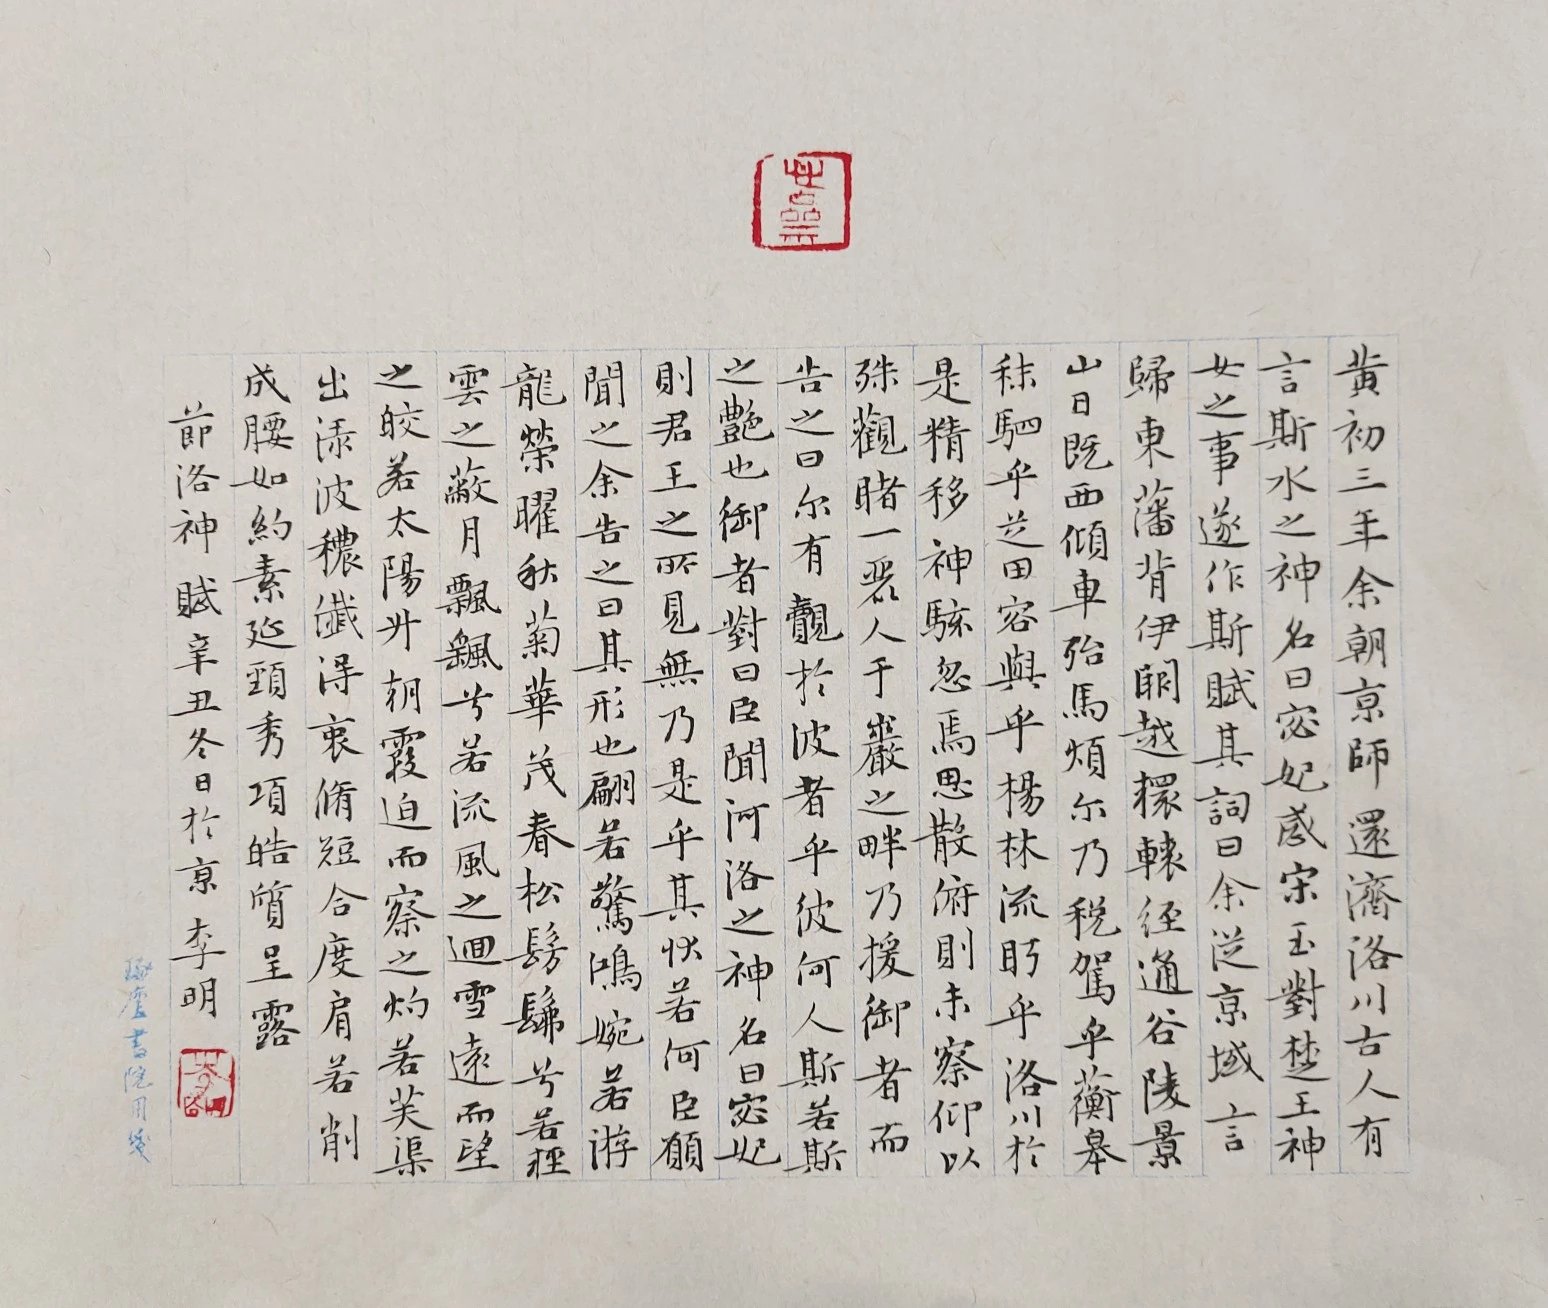 黃初三年余朝京師還濟洛川古人有
言斯水之神名曰宓妃感宋玉對楚王神
女之事遂作斯賦其詞曰余從京域言
歸東藩背伊闕越轘轅經通谷陵景
山日既西傾車殆馬煩尔乃税駕乎蘅皋
秣駟乎芝田容與乎楊林流眄乎洛川於
是精移神駭忽焉思散俯則未察仰以
殊觀睹一麗人于巖之畔乃援御者而
告之曰尔有覿於彼者乎彼何人斯若斯
之艷也御者對曰臣聞河洛之神名曰宓妃
則君王之所見無乃是乎其狀若何臣願
聞之余告之曰其形也翩若驚鴻婉若游
龍榮曜秋菊華茂春松髣髴兮若輕
雲之蔽月飄飖兮若流風之迴雪遠而望
之皎若太陽升朝霞迫而察之灼若芙渠
出淥波穠纖得衷脩短合度肩若削
成腰如約素延頸秀項皓質呈露
節洛神賦辛丑冬日於京李明
書院用箋